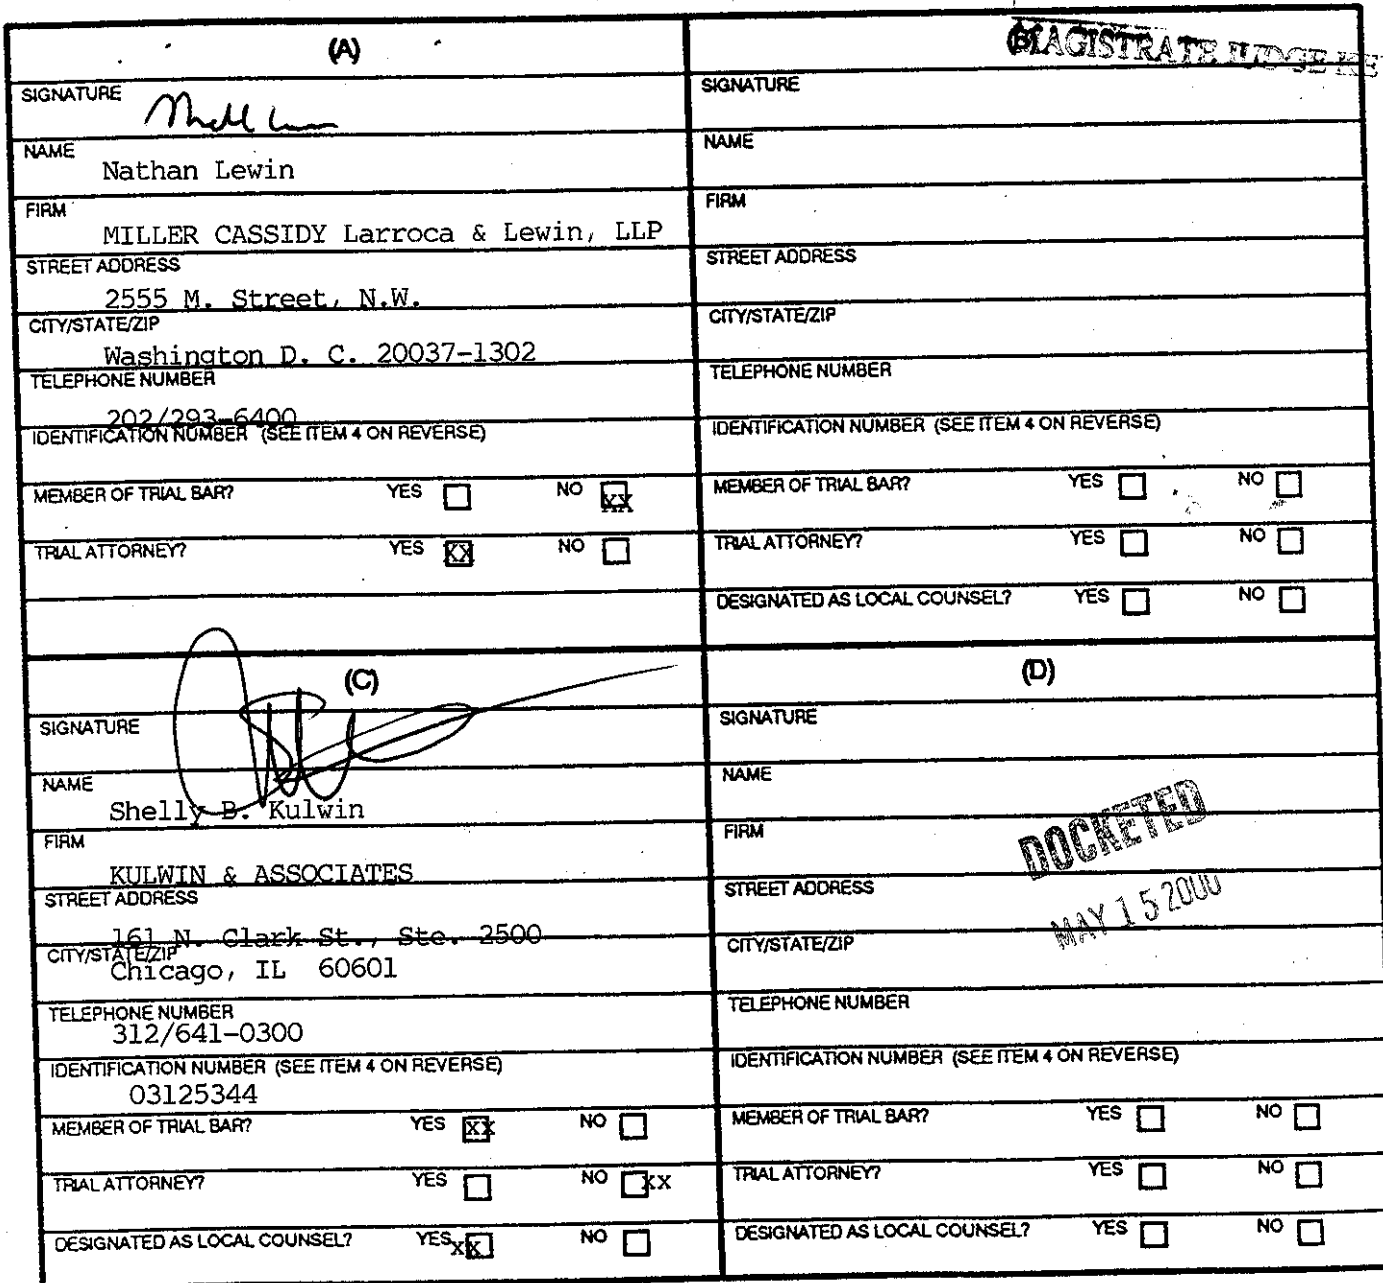 (A)
SIGNATURE
NAME
Nathan Lewin
FIRM
MILLER CASSIDY Larroca & Lewin, LLP
STREET ADDRESS
2555 M. Street, N.W.
CITY/STATE/ZIP
Washington D. C. 20037-1302
TELEPHONE NUMBER
202/293-6400
IDENTIFICATION NUMBER (SEE ITEM 4 ON REVERSE)
MEMBER OF TRIAL BAR? YES NO XX
TRIAL ATTORNEY? YES XX NO
(B)
MAGISTRATE JUDGE
SIGNATURE
NAME
FIRM
STREET ADDRESS
CITY/STATE/ZIP
TELEPHONE NUMBER
IDENTIFICATION NUMBER (SEE ITEM 4 ON REVERSE)
MEMBER OF TRIAL BAR? YES NO
TRIAL ATTORNEY? YES NO
DESIGNATED AS LOCAL COUNSEL? YES NO
(C)
SIGNATURE
NAME
Shelly B. Kulwin
FIRM
KULWIN & ASSOCIATES
STREET ADDRESS
161 N. Clark St., Ste. 2500
CITY/STATE/ZIP
Chicago, IL 60601
TELEPHONE NUMBER
312/641-0300
IDENTIFICATION NUMBER (SEE ITEM 4 ON REVERSE)
03125344
MEMBER OF TRIAL BAR? YES XX NO
TRIAL ATTORNEY? YES NO xx
DESIGNATED AS LOCAL COUNSEL? YES xx NO
(D)
SIGNATURE
NAME
FIRM
DOCKETED
STREET ADDRESS
MAY 15 2000
CITY/STATE/ZIP
TELEPHONE NUMBER
IDENTIFICATION NUMBER (SEE ITEM 4 ON REVERSE)
MEMBER OF TRIAL BAR? YES NO
TRIAL ATTORNEY? YES NO
DESIGNATED AS LOCAL COUNSEL? YES NO